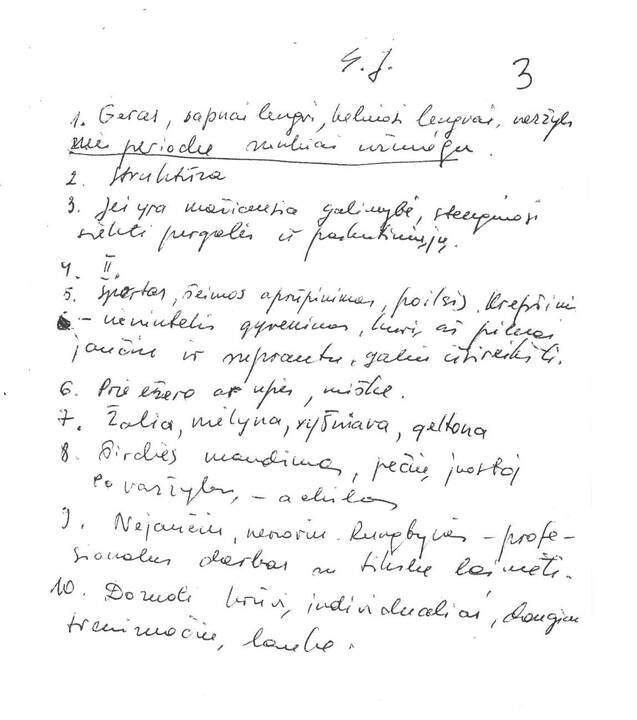 G. J. 3
1. Geras, sapnai lengvi, keliuosi lengvai, varžybi
niu periodu sunkiai užmiegu.
2. Struktūra
3. Jei yra mažiausia galimybė, stengiuosi
siekti pergalės iš paskutiniųjų.
4. II.
5. Sportas, šeimos aprūpinimas, poilsis. Krepšini
– vienintelis gyvenimas, kurį aš pilnai
jaučiu ir suprantu, galiu išsireikšti.
6. Prie ežero ar upės, miške.
7. Žalia, mėlyna, vyšniava, geltona
8. Širdies maudimas, pečių juostoj
Po varžybų, –
9. Nejaučiu, nenoriu. Rungtynės – profe-
sionalus darbas su tikslu laimėti.
10. Dozuoti krūvį, individualiai, daugiau
treniruočių, lauke.